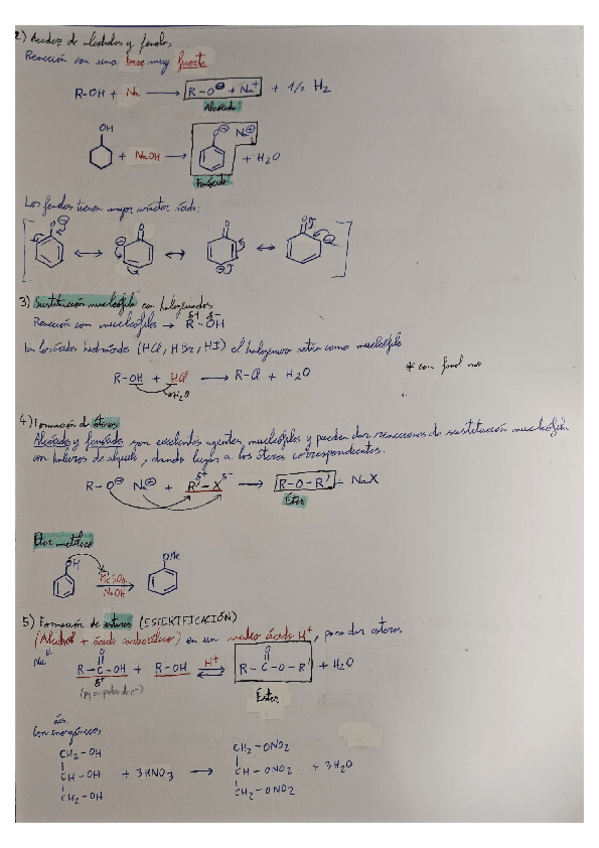 2) Acidez de alcoholes y fenoles
Reacción con una base muy fuerte
R-OH + Na → R-O⊖ + Na⁺ + 1/2 H₂
Alcóxido
OH O⊖ Na⊕
+ NaOH → + H₂O
Fenóxido
Los fenoles tienen mayor carácter ácido:
3) Sustitución nucleófila con halogenados
Reacción con nucleófilos → R-OH
δ+ δ-
En los ácidos hidrácidos (HCl, HBr, HI) el halógeno actúa como nucleófilo
R-OH + HCl → R-Cl + H₂O
* con fenol no
H₂O
4) Formación de éteres
Alcóxido y fenóxido son excelentes agentes nucleófilos y pueden dar reacciones de sustitución nucleófila
con haluros de alquilo, dando lugar a los éteres correspondientes.
R-O⊖ Na⊕ + R'-X → R-O-R' + NaX
δ+ δ-
Éter
Éter metílico
OH OMe
NaOH
5) Formación de ésteres (ESTERIFICACIÓN)
(Alcohol + ácido carboxílico) en un medio ácido H⁺, para dar ésteres
Nu
R-C-OH + R-OH ⇌ R-C-O-R' + H₂O
O H⁺ O
δ+
Éster
ác.
Con inorgánicos
CH₂-OH CH₂-ONO₂
CH-OH + 3HNO₃ → CH-ONO₂ + 3H₂O
CH₂-OH CH₂-ONO₂